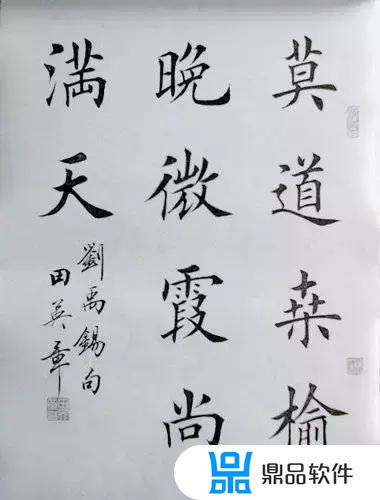 莫道桒榆
晚微霞尚
满天
劉禹錫句
田英章
鼎品软件